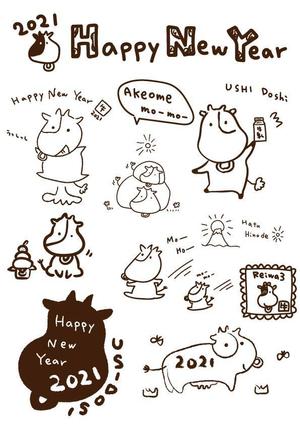 2021
Happy New Year
Happy New Year
牛
2021
Akeome
mo-mo-
USHI Doshi
Mo-
Mo-
Hatu
Hinode
Reiwa3
牛
Happy
New
Year
2021
USIDOSI
2021